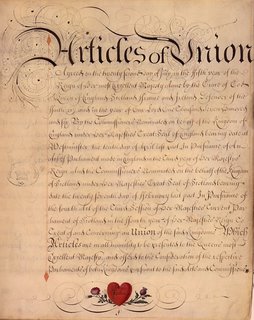 Articles of Union
Agreed on the twenty Second day of July, in the fifth year of the
Reign of Her most Excellent Majesty Anne by the Grace of God
Queen of England Scotland France and Ireland Defender of the
Faith &c and in the year of our Lord One Thousand Seven Hundred
and six. By the Commissioners Nominated on behalf of the Kingdom of
England under Her Majesties Great Seal of England bearing date at
Westminster the tenth day of April last past In Pursuance of an
Act of Parliament made in England in the third year of Her Majesties
Reign and the Commissioners Nominated on the behalf of the Kingdom
of Scotland under Her Majesties Great Seal of Scotland bearing
date the twenty seventh day of February last past In Pursuance of
the fourth Act of the third Session of
Parliament of Scotland in the fifth year of Her Majesties Reign To
Treat of and Concerning an Union of the said Kingdoms Which
Articles are in all humility to be presented to the Queens most
Excellent Majesty, and offered to the Consideration of the respective
Parliaments of both Kingdoms pursuant to the said Acts and Commissions